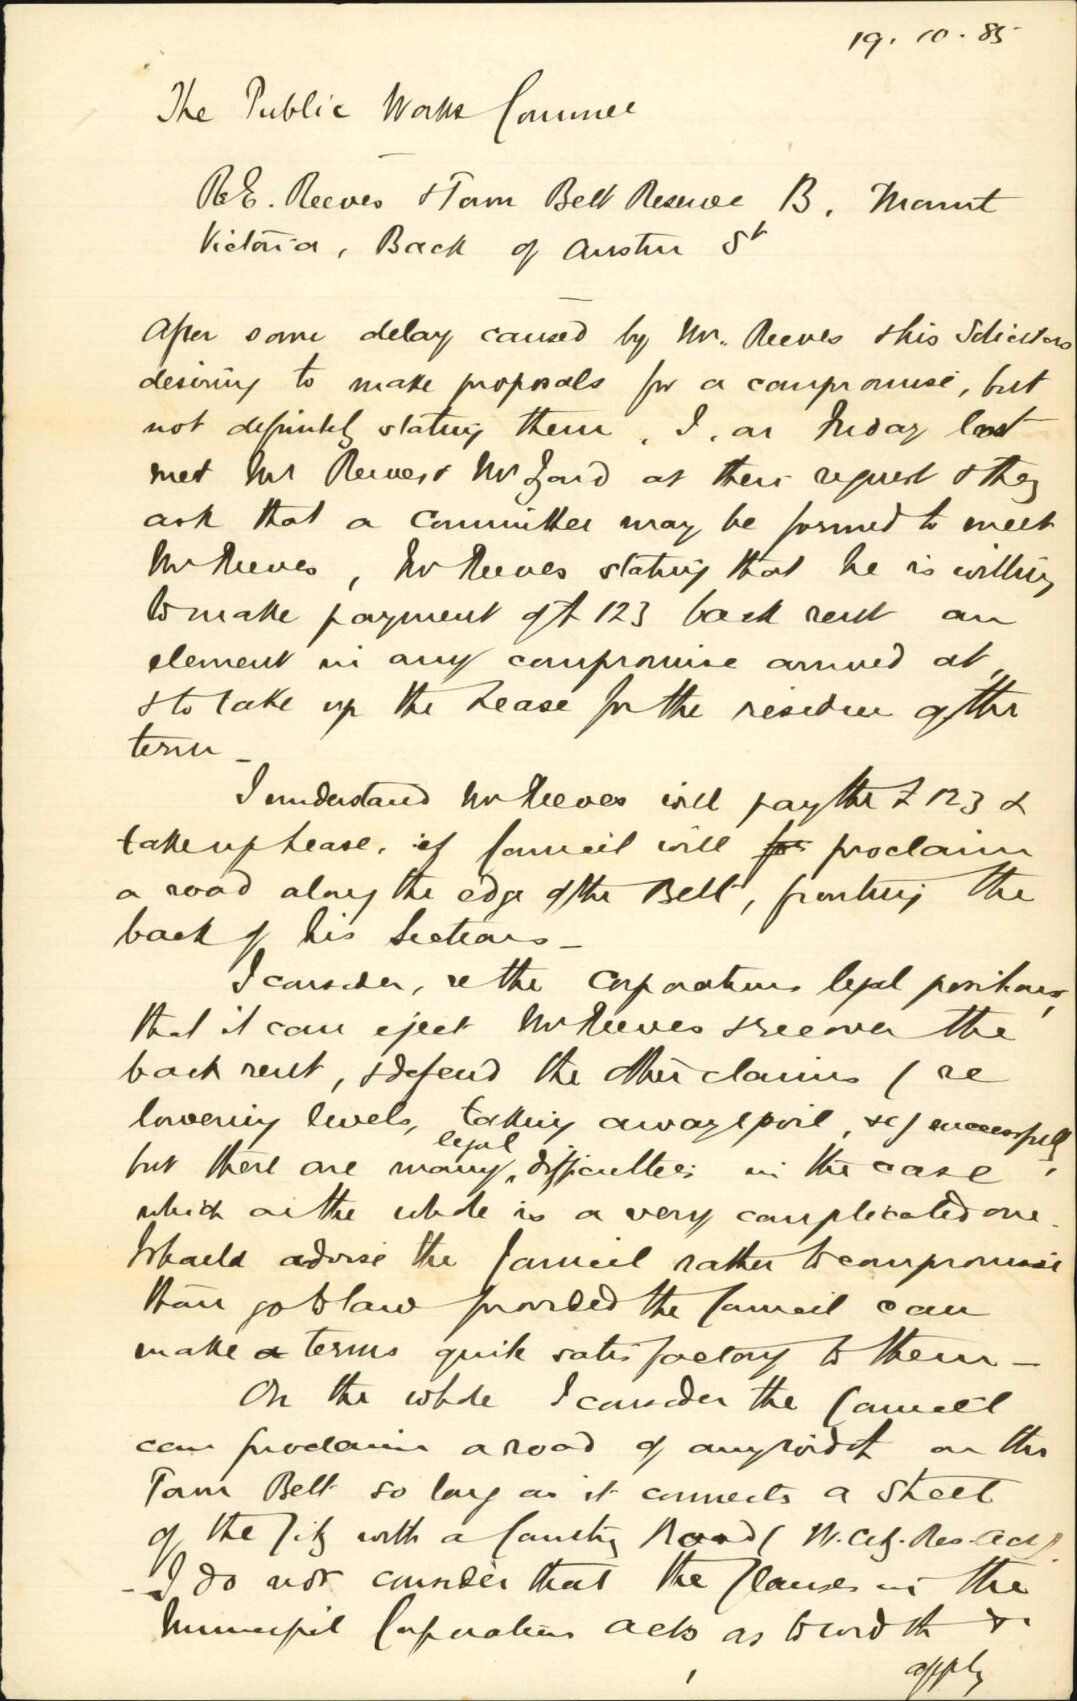 19. 10. 85
The Public Works Commee
Re E. Reeves & Town Belt Reserve B. Mount
Victoria, Back of Austin St
After some delay caused by Mr. Reeves & his Solicitors
desiring to make proposals for a compromise, but
not definitely stating them, I, on Friday last
met Mr Reeves & Mr at their request & they
ask that a Committee may be formed to meet
Mr Reeves, Mr Reeves stating that he is willing
to make payment of £123 back rent an
element in any compromise arrived at,
& to take up the Lease for the residue of the
term —
I understand Mr Reeves will pay the £123 &
take up Lease, if Council will proclaim
a road along the edge of the Belt, fronting the
back of his Sections —
I consider, re the Corporations legal positions,
that it can eject Mr Reeves & recover the
back rent, & defend the other claims (re
lowering levels, taking away spoil, &c) successfully,
but there are many legal difficulties in the case
which on the whole is a very complicated one.
I should advise the Council rather to compromise
than go to law provided the Council can
make terms quite satisfactory to them —
On the whole I consider the Council
can proclaim a road of any width on the
Town Belt so long as it connects a Street
of the City with a County Road (W. City. Res. Act).
- I do not consider that the Clauses in the
Municipal Corporations Acts as to width &c
apply